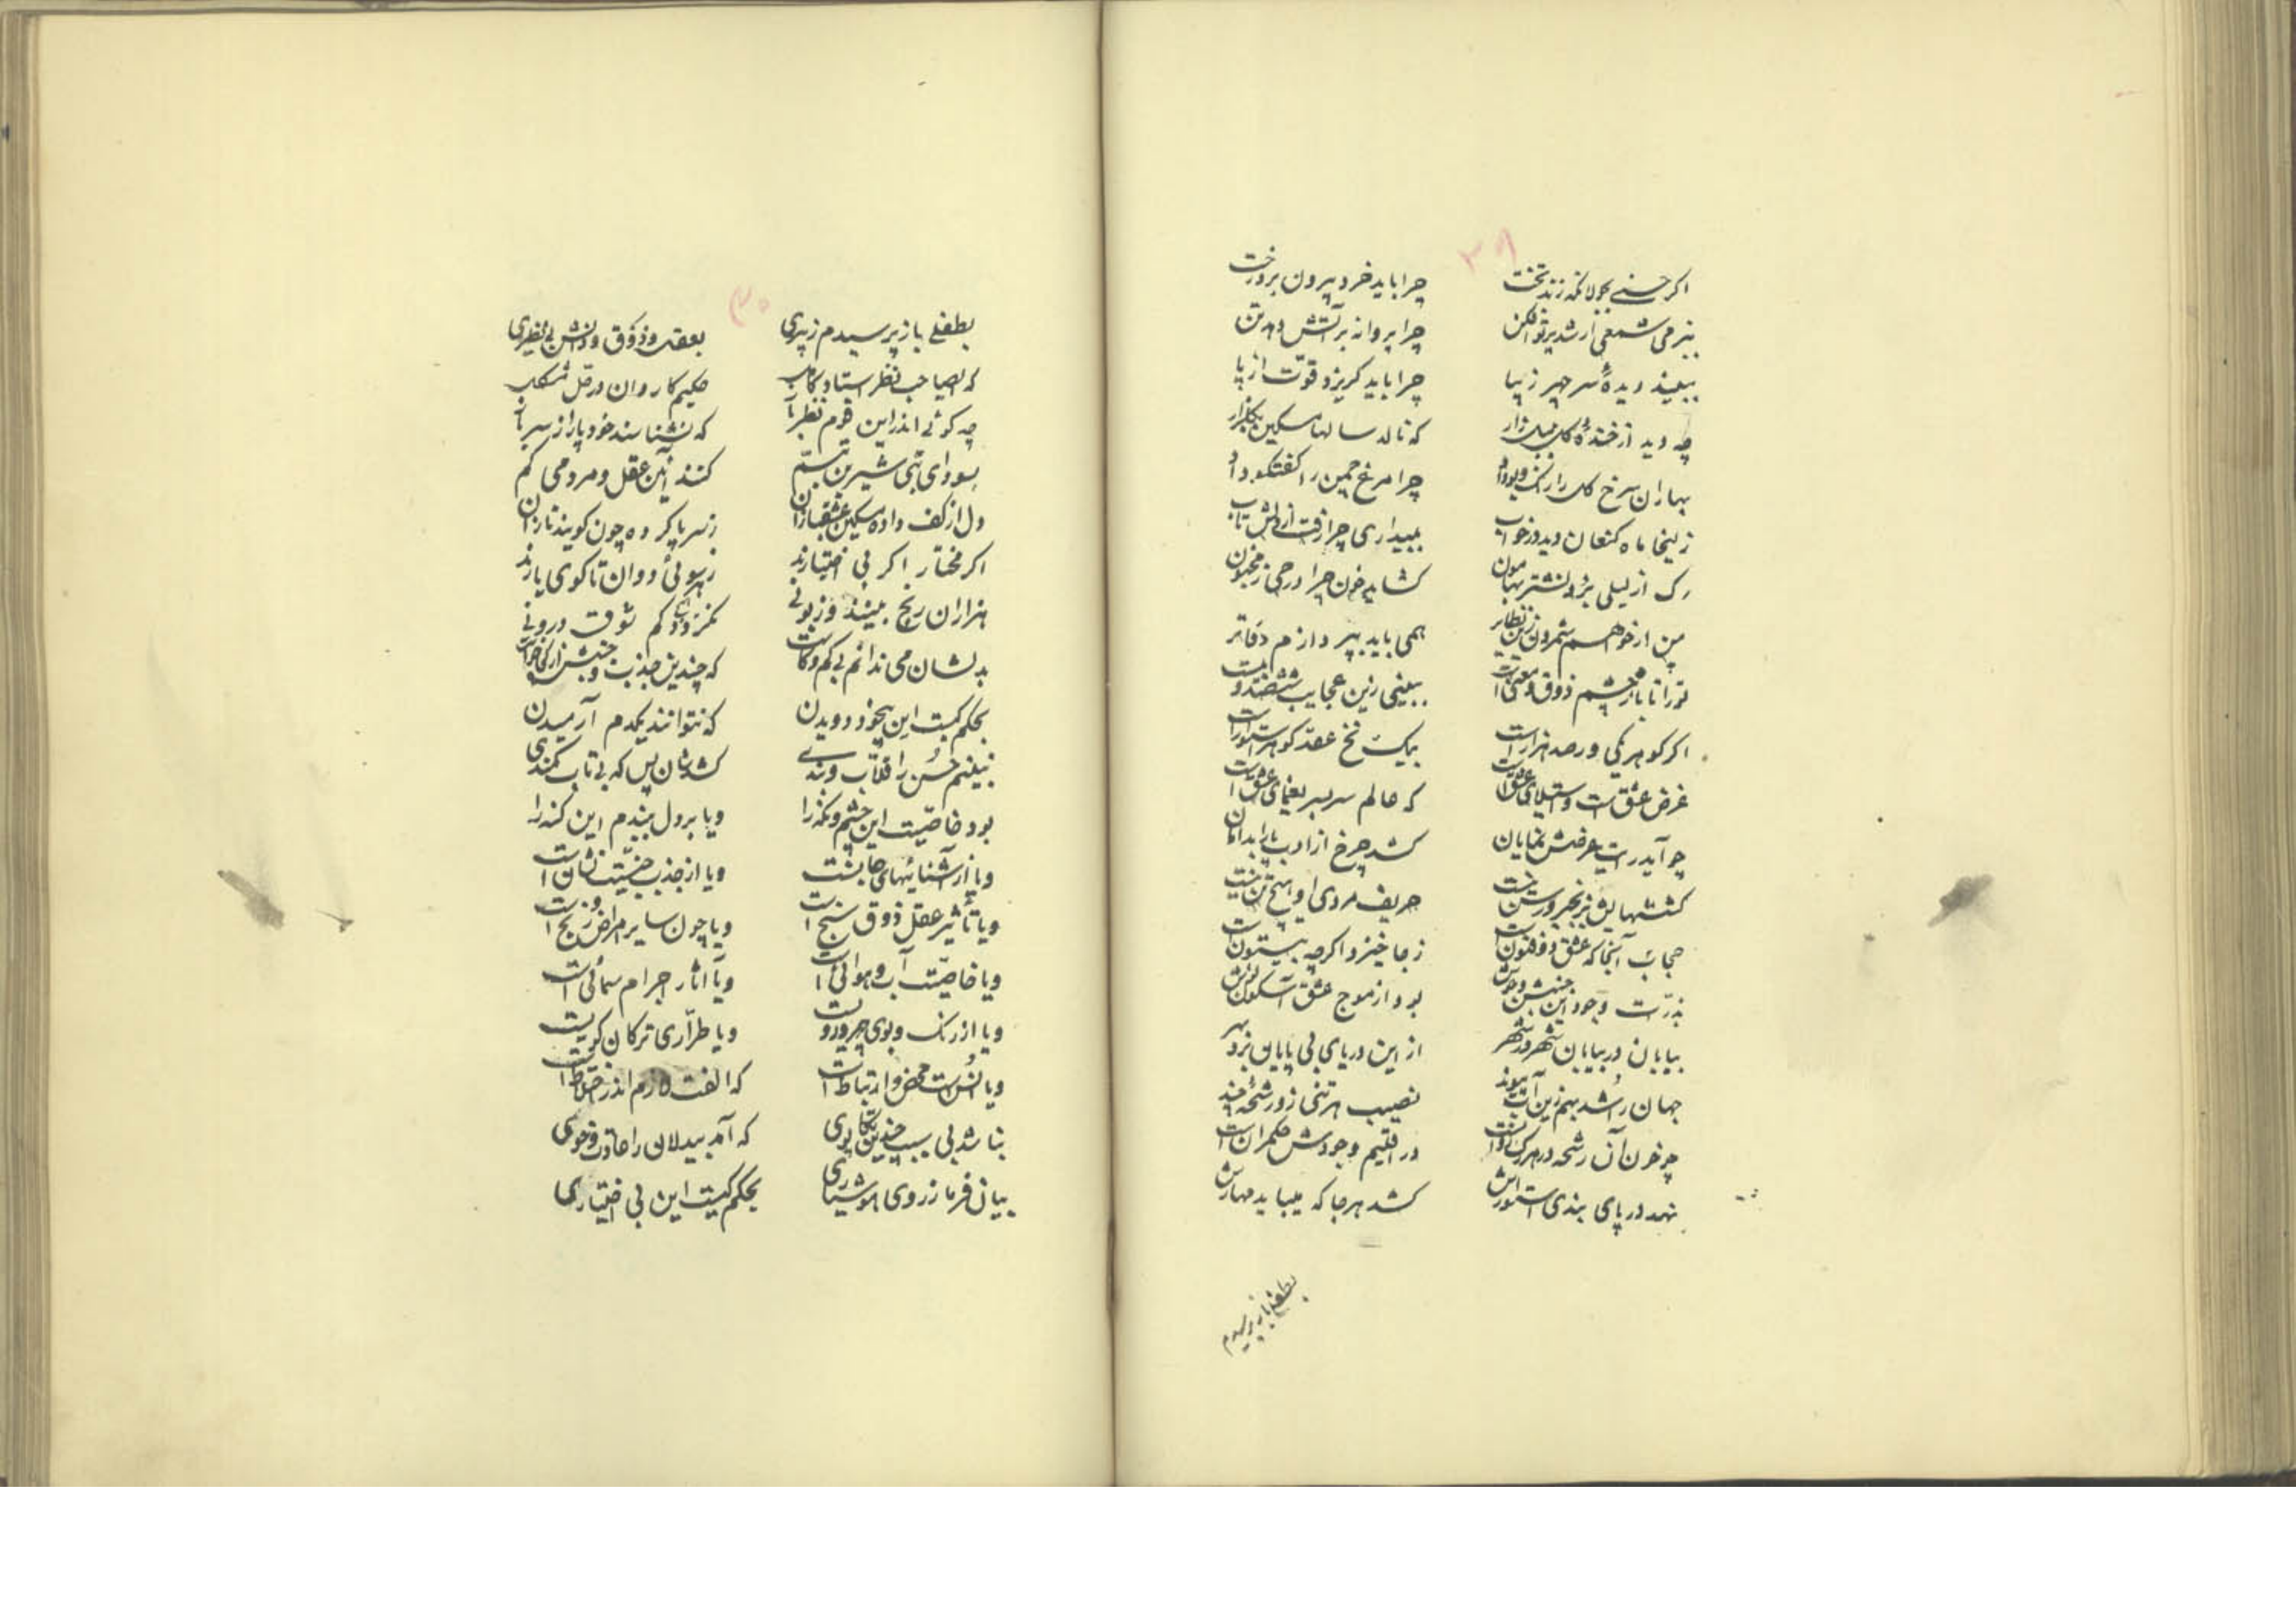 ۲۹
اگر حسنی بجولانگه زند تخت چرا باید خرد بیرون برد رخت
ببزمی شمعی ار شد پرتو افکن چرا پروانه بر آتش دهد تن
ببیند دیدهٔ سر چهر زیبا چرا باید گریزد قوّت از پا
چه دید از خندهٔ گل بلبل زار که نالد سالها مسکین بگلزار
بهاران سرخ گل را رنگ و بو داد چرا مرغ چمن را گفتگو داد
زلیخا ماه کنعان دید در خواب ببیداری چرا رفت از دلش تاب
رگ از لیلی برد نشتر بهامون گشاید خون چرا در حی ز مجنون
من ار خواهم شمردن زین نظایر همی باید بپردازم دفاتر
تو را تا باز چشم ذوق و معنی است ببینی زین عجایب
اگر گوهر یکی ور صد هزار است بیک نخ عقد گوهر استوار است
غرض عشق است و استیلای عشق است که عالم سربسر یغمای عشق است
چو آید رایت عرضش نمایان کشد چرخ از ادب پا را بدامان
حریف مردی او هیچ تن نیست
عجب آنجا که عشق ذوفنون است ز جا خیزد اگر چه بیستون است
بذرّات وجود این جنبش و جوش بود از موج عشق
بیابان در بیابان شهر در شهر از این دریای بی پایان برد بهر
جهان را شد بهم زین آب پیوند نصیب هر تنی زو رشحهٔ چند
چو خون آن رشحه در هر رگ در اقلیم وجودش حکمران است
نهد در پای بندی استوارش کشد هر جا که میباید مهارش
بطفلی باز پرسیدم
۳۰
بطفلی باز پرسیدم ز پیری بعقل و ذوق و دانش بی نظیری
که ایصاحب نظر استاد کامل حکیم کاروان در حل مشکل
چه گوئی اندر این قوم نظرباز که نشناسند خود پا را از سر باز
بسودای بتی شیرین تبسّم کنند آئین عقل و مردمی گم
دل از کف داده مسکین عشقبازان ز سر پا کرده چون گویند تازان
اگر مختار اگر بی اختیارند برسوائی دوان تا کوی یارند
هزاران رنج بینند و زبونی نگردد کم شوق درونی
بدلشان می ندانم بی کم و کاست که چندین جذب و جنبش از کجا خواست
بحکم کیست این بیخود دویدن که نتوانند یکدم آرمیدن
نبینم حسن را قلّاب و بندی کشدشان پس که بی تاب کمندی
بود خاصیّت این چشم و نگه را و یا بر دل ببندم این گنه را
و یا از آشنائیهای جانست و یا از جذب جنسیّت نشان است
و یا تأثیر عقل ذوق سنج است و یا چون سایر امراض و رنج است
و یا خاصیّت آب و هوائی است و یا آثار اجرام سمائی است
و یا از رنگ و بوی و یا طرّاری ترکان
و یا اُنس است محض و ارتباط است که الفت لازم اندر اختلاط است
نباشد بی سبب چندین تکاپوی که آمد بیدلان را عادت و خوی
بیان فرما ز روی هوشیاری بحکم کیست این بی اختیاری